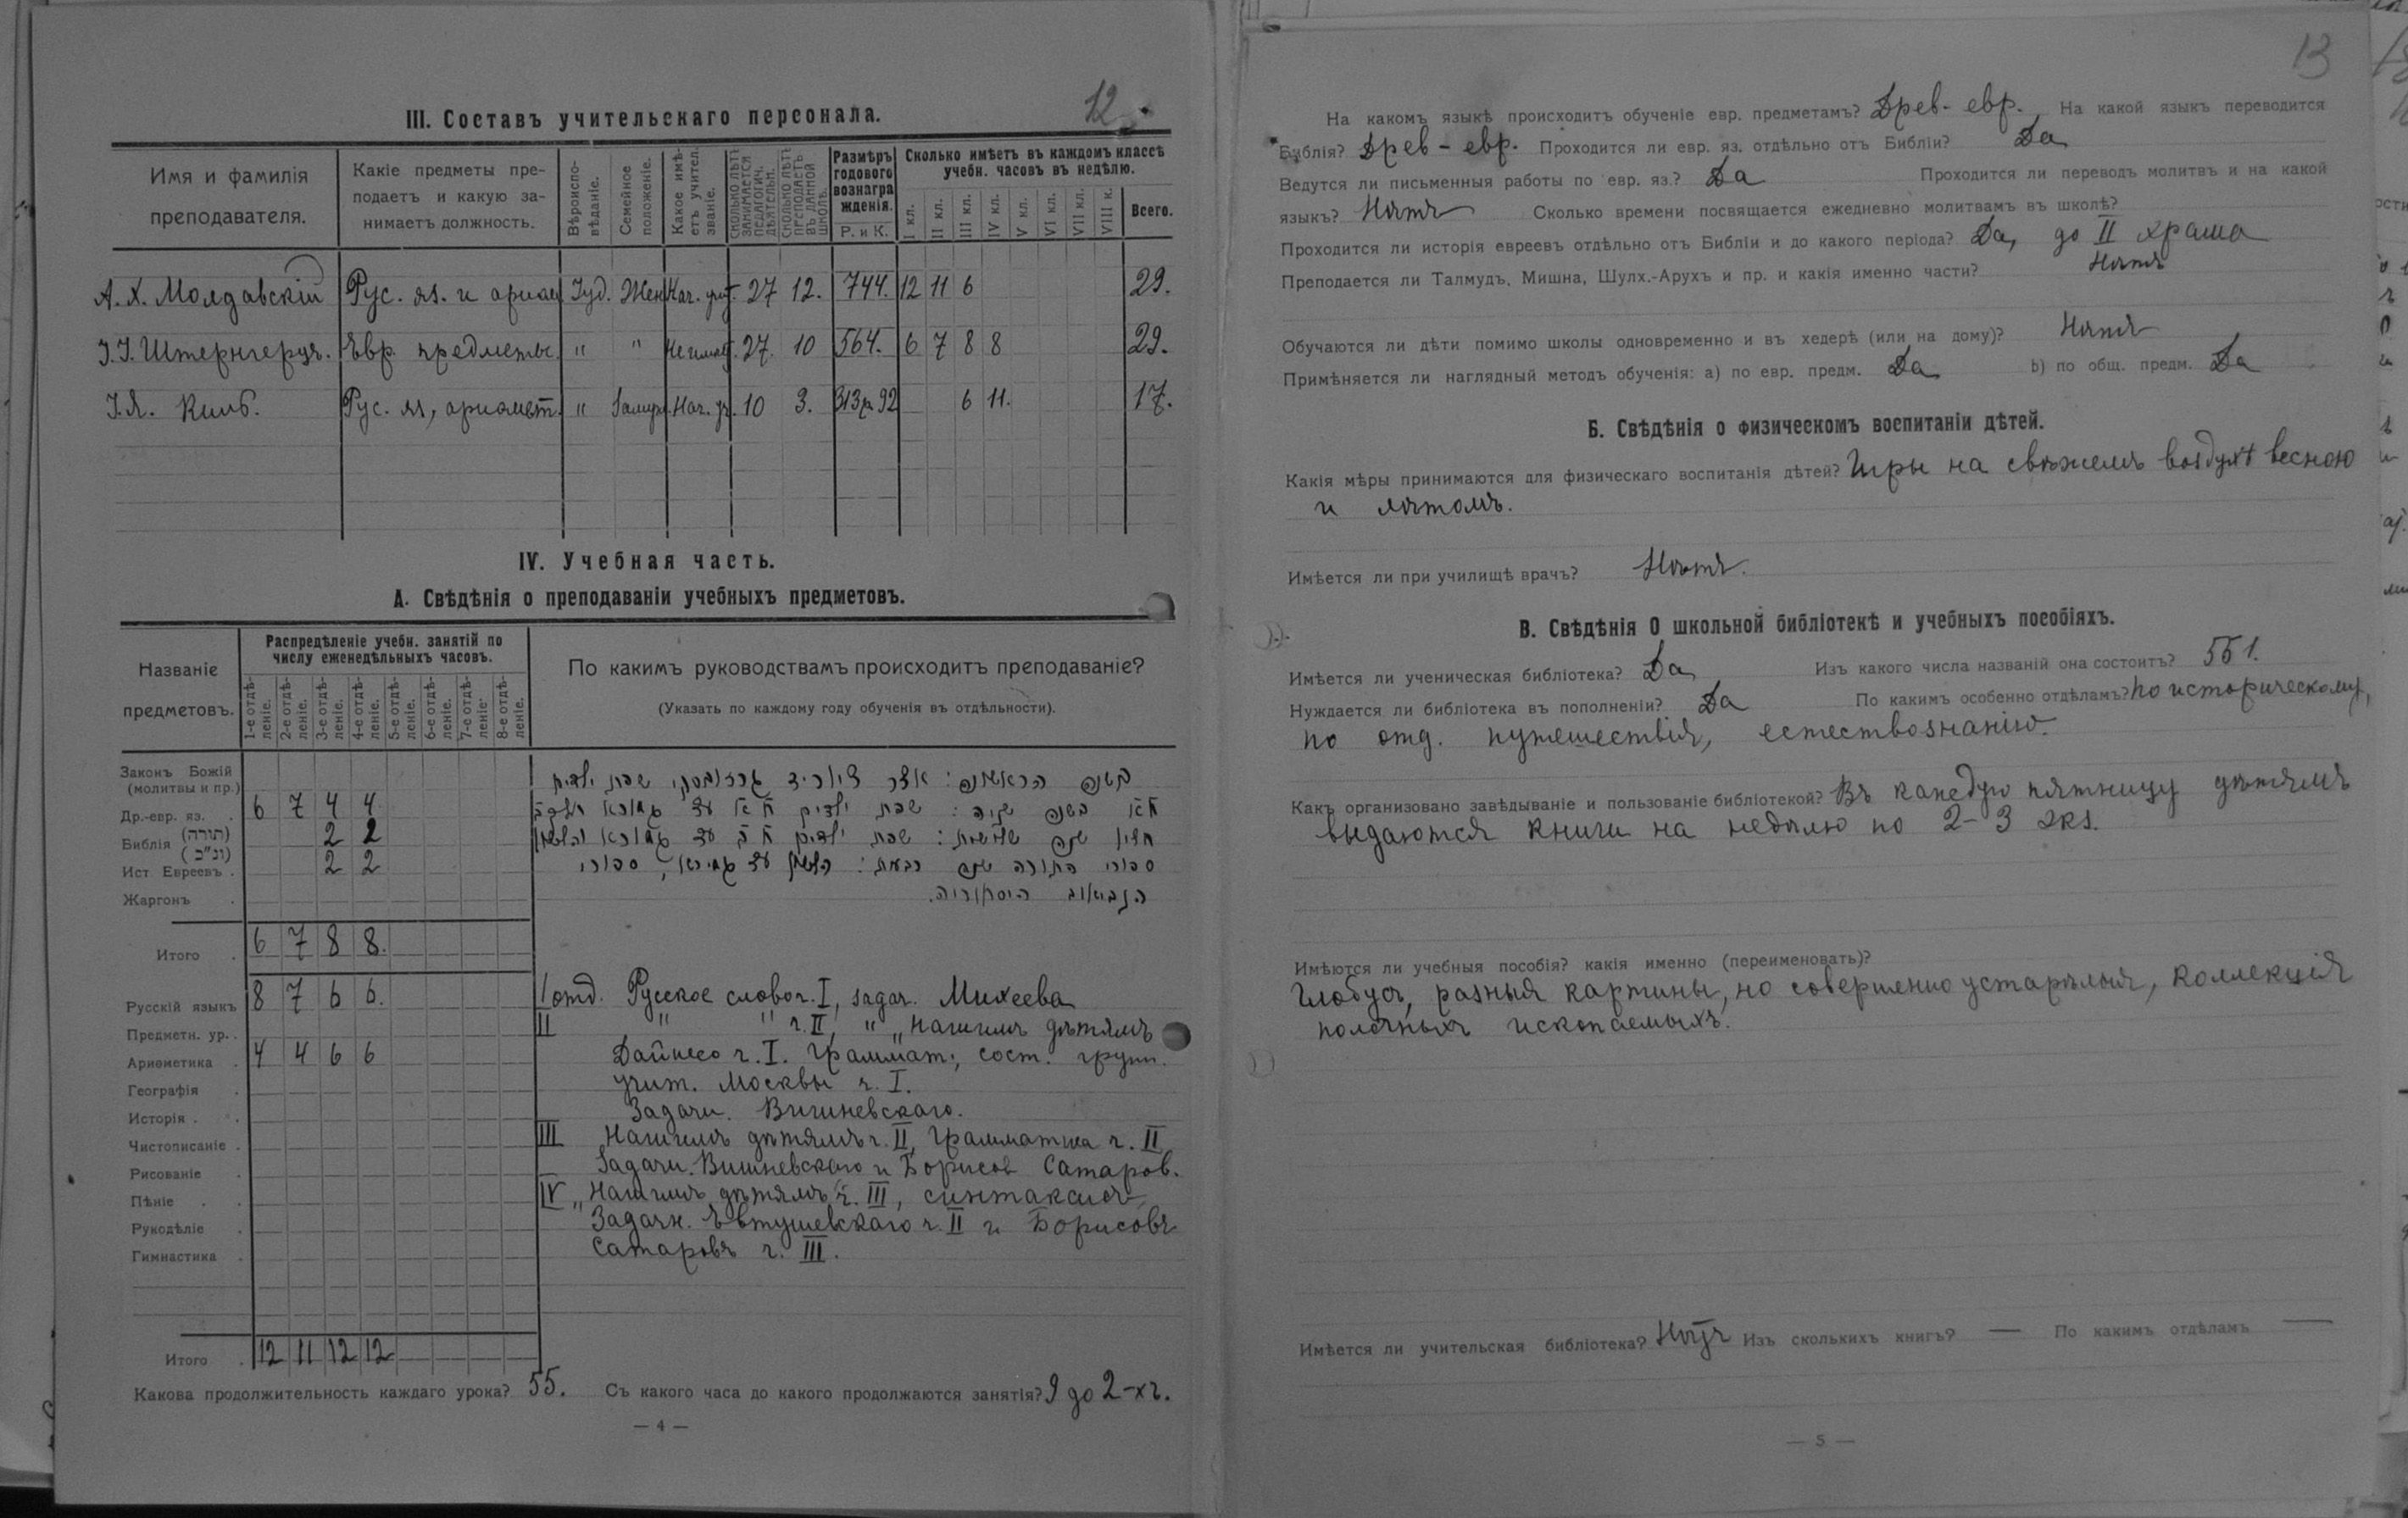 12
III. Составъ учительскаго персонала.
Имя и фамилія преподавателя.
Какіе предметы преподаетъ и какую занимаетъ должность.
Вѣроисповѣданіе.
Семейное положеніе.
Какое имѣетъ учител. званіе.
Сколько лѣтъ занимается педагогич. дѣятельн.
Сколько лѣтъ преподаетъ въ данной школѣ.
Размѣръ годового вознагражденія.
Р. и К.
Сколько имѣетъ въ каждомъ классѣ учебн. часовъ въ недѣлю.
I кл. II кл. III кл. IV кл. V кл. VI кл. VII кл. VIII к. Всего.
А. Х. Молдавскій Рус. яз. и ариѳм. Іуд. Жен. Нач. уч. 27 12. 744. 12 11 6 29.
І. І. Штернгерцъ. Евр. предметы. " " 27. 10 564. 6 7 8 8 29.
І. Я. Рус. яз., ариѳмет. " Замуж. Нач. уч. 10 3. 313р. 92 6 11. 17.
IV. Учебная часть.
А. Свѣдѣнія о преподаваніи учебныхъ предметовъ.
Названіе предметовъ.
Распредѣленіе учебн. занятій по числу еженедѣльныхъ часовъ.
1-е отдѣленіе. 2-е отдѣленіе. 3-е отдѣленіе. 4-е отдѣленіе. 5-е отдѣленіе. 6-е отдѣленіе. 7-е отдѣленіе. 8-е отдѣленіе.
По какимъ руководствамъ происходитъ преподаваніе?
(Указать по каждому году обученія въ отдѣльности).
Законъ Божій (молитвы и пр.)
Др.-евр. яз. 6 7 4 4
Библія (תורה) 2 2
(ונ"כ)
Ист. Евреевъ. 2 2
Жаргонъ
בשנה הראשונה: שפת ילדים
ח"א בשנה שניה: שפת ילדים ח"א עד גמירא
שנה שלישית: שפת ילדים ח"ב עד גמירא
ספורי התורה שנה רבעית: עד גמירא, ספורי
הנביאים היסטוריה.
Итого 6 7 8 8.
Русскій языкъ 8 7 6 6.
Предметн. ур.
Ариѳметика 4 4 6 6
Географія
Исторія
Чистописаніе
Рисованіе
Пѣніе
Рукодѣліе
Гимнастика
I отд. Русское слово ч. I, задач. Михеева
II " " ч. II, " " Нашимъ дѣтямъ
ч. I. Граммат., сост. групп.
учит. Москвы ч. I.
Задачи. Вишневскаго.
III Нашимъ дѣтямъ ч. II, Грамматика ч. II
Задачи. Вишневскаго и Борисов Сатаров.
IV " Нашимъ дѣтямъ ч. III, синтаксисъ,
Задачн. Евтушевскаго ч. II и Борисовъ
Сатаровъ ч. III.
Итого 12 11 12 12
Какова продолжительность каждаго урока? 55. Съ какого часа до какого продолжаются занятія? 9 до 2-хъ.
— 4 —
13
На какомъ языкѣ происходитъ обученіе евр. предметамъ? Древ.-евр. На какой языкъ переводится
Библія? Древ-евр. Проходится ли евр. яз. отдѣльно отъ Библіи? Да
Ведутся ли письменныя работы по евр. яз.? Да Проходится ли переводъ молитвъ и на какой
языкъ? Нѣтъ Сколько времени посвящается ежедневно молитвамъ въ школѣ?
Проходится ли исторія евреевъ отдѣльно отъ Библіи и до какого періода? Да, до II храма
Преподается ли Талмудъ, Мишна, Шулх.-Арухъ и пр. и какія именно части? Нѣтъ
Обучаются ли дѣти помимо школы одновременно и въ хедерѣ (или на дому)? Нѣтъ
Примѣняется ли наглядный методъ обученія: а) по евр. предм. Да b) по общ. предм. Да
Б. Свѣдѣнія о физическомъ воспитаніи дѣтей.
Какія мѣры принимаются для физическаго воспитанія дѣтей? Игры на свѣжемъ воздухѣ весною
и лѣтомъ.
Имѣется ли при училищѣ врачъ? Нѣтъ.
В. Свѣдѣнія О школьной библіотекѣ и учебныхъ пособіяхъ.
Имѣется ли ученическая библіотека? Да Изъ какого числа названій она состоитъ? 551.
Нуждается ли библіотека въ пополненіи? Да По какимъ особенно отдѣламъ? по историческому,
по отд. путешествія, естествознанію.
Какъ организовано завѣдываніе и пользованіе библіотекой? Въ каждую пятницу дѣтямъ
выдаются книги на недѣлю по 2-3 экз.
Имѣются ли учебныя пособія? какія именно (переименовать)?
Глобусъ, разныя картины, но совершенно устарѣлыя, коллекція
полезныхъ ископаемыхъ.
Имѣется ли учительская библіотека? Нѣтъ Изъ сколькихъ книгъ? — По какимъ отдѣламъ —
— 5 —